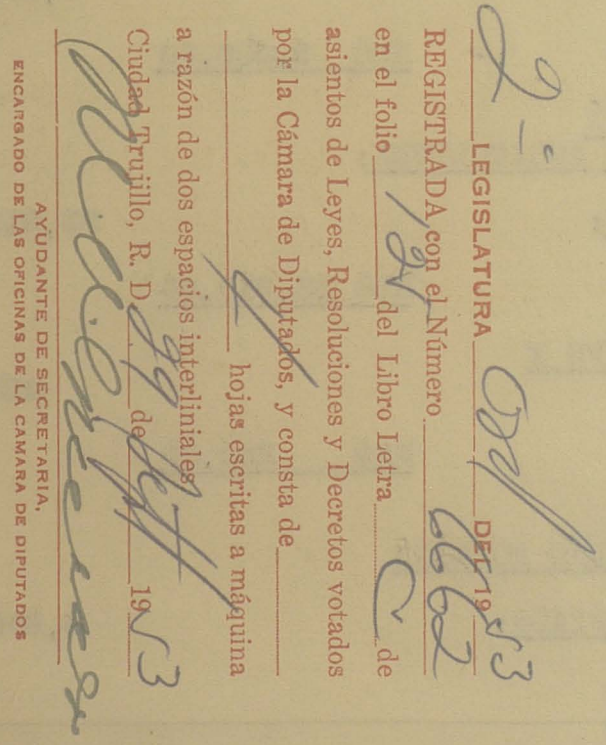 2ª LEGISLATURA Ord DEL 1953
REGISTRADA con el Número 6662
en el folio 12V del Libro Letra C de
asientos de Leyes, Resoluciones y Decretos votados
por la Cámara de Diputados, y consta de
4 hojas escritas a máquina
a razón de dos espacios interliniales
Ciudad Trujillo, R. D. 29 de Sept 1953
AYUDANTE DE SECRETARIA,
ENCARGADO DE LAS OFICINAS DE LA CAMARA DE DIPUTADOS